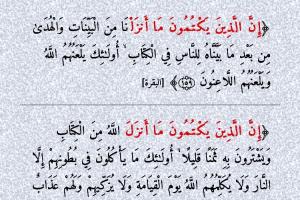 ﴿إِنَّ الَّذِينَ يَكْتُمُونَ مَا أَنزَلْنَا مِنَ الْبَيِّنَاتِ وَالْهُدَىٰ
مِن بَعْدِ مَا بَيَّنَّاهُ لِلنَّاسِ فِي الْكِتَابِ ۙ أُولَٰئِكَ يَلْعَنُهُمُ اللَّهُ
وَيَلْعَنُهُمُ اللَّاعِنُونَ ﴿١٥٩﴾﴾ [البقرة]
﴿إِنَّ الَّذِينَ يَكْتُمُونَ مَا أَنزَلَ اللَّهُ مِنَ الْكِتَابِ
وَيَشْتَرُونَ بِهِ ثَمَنًا قَلِيلًا ۙ أُولَٰئِكَ مَا يَأْكُلُونَ فِي بُطُونِهِمْ إِلَّا
النَّارَ وَلَا يُكَلِّمُهُمُ اللَّهُ يَوْمَ الْقِيَامَةِ وَلَا يُزَكِّيهِمْ وَلَهُمْ عَذَابٌ